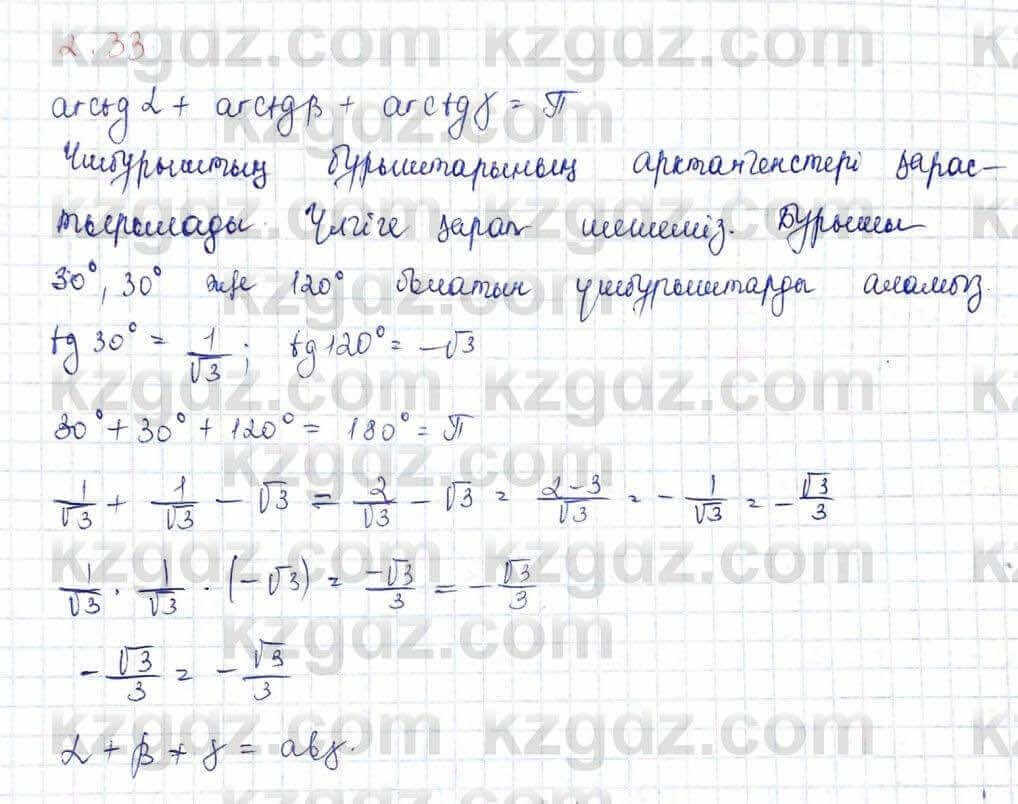 2.33
arctg α + arctg β + arctg γ = π
Үшбұрыштың бұрыштарының арктангенстері қарас-
тырылады. Үлгіге қарап шешеміз. Бұрышы
30°, 30° және 120° болатын үшбұрыштарды аламыз.
tg 30° = 1/√3; tg 120° = -√3
30° + 30° + 120° = 180° = π
1/√3 + 1/√3 - √3 = 2/√3 - √3 = 2-3/√3 = - 1/√3 = - √3/3
1/√3 · 1/√3 · (-√3) = -√3/3 = - √3/3
- √3/3 = - √3/3
α + β + γ = αβγ.
kzgdz.com